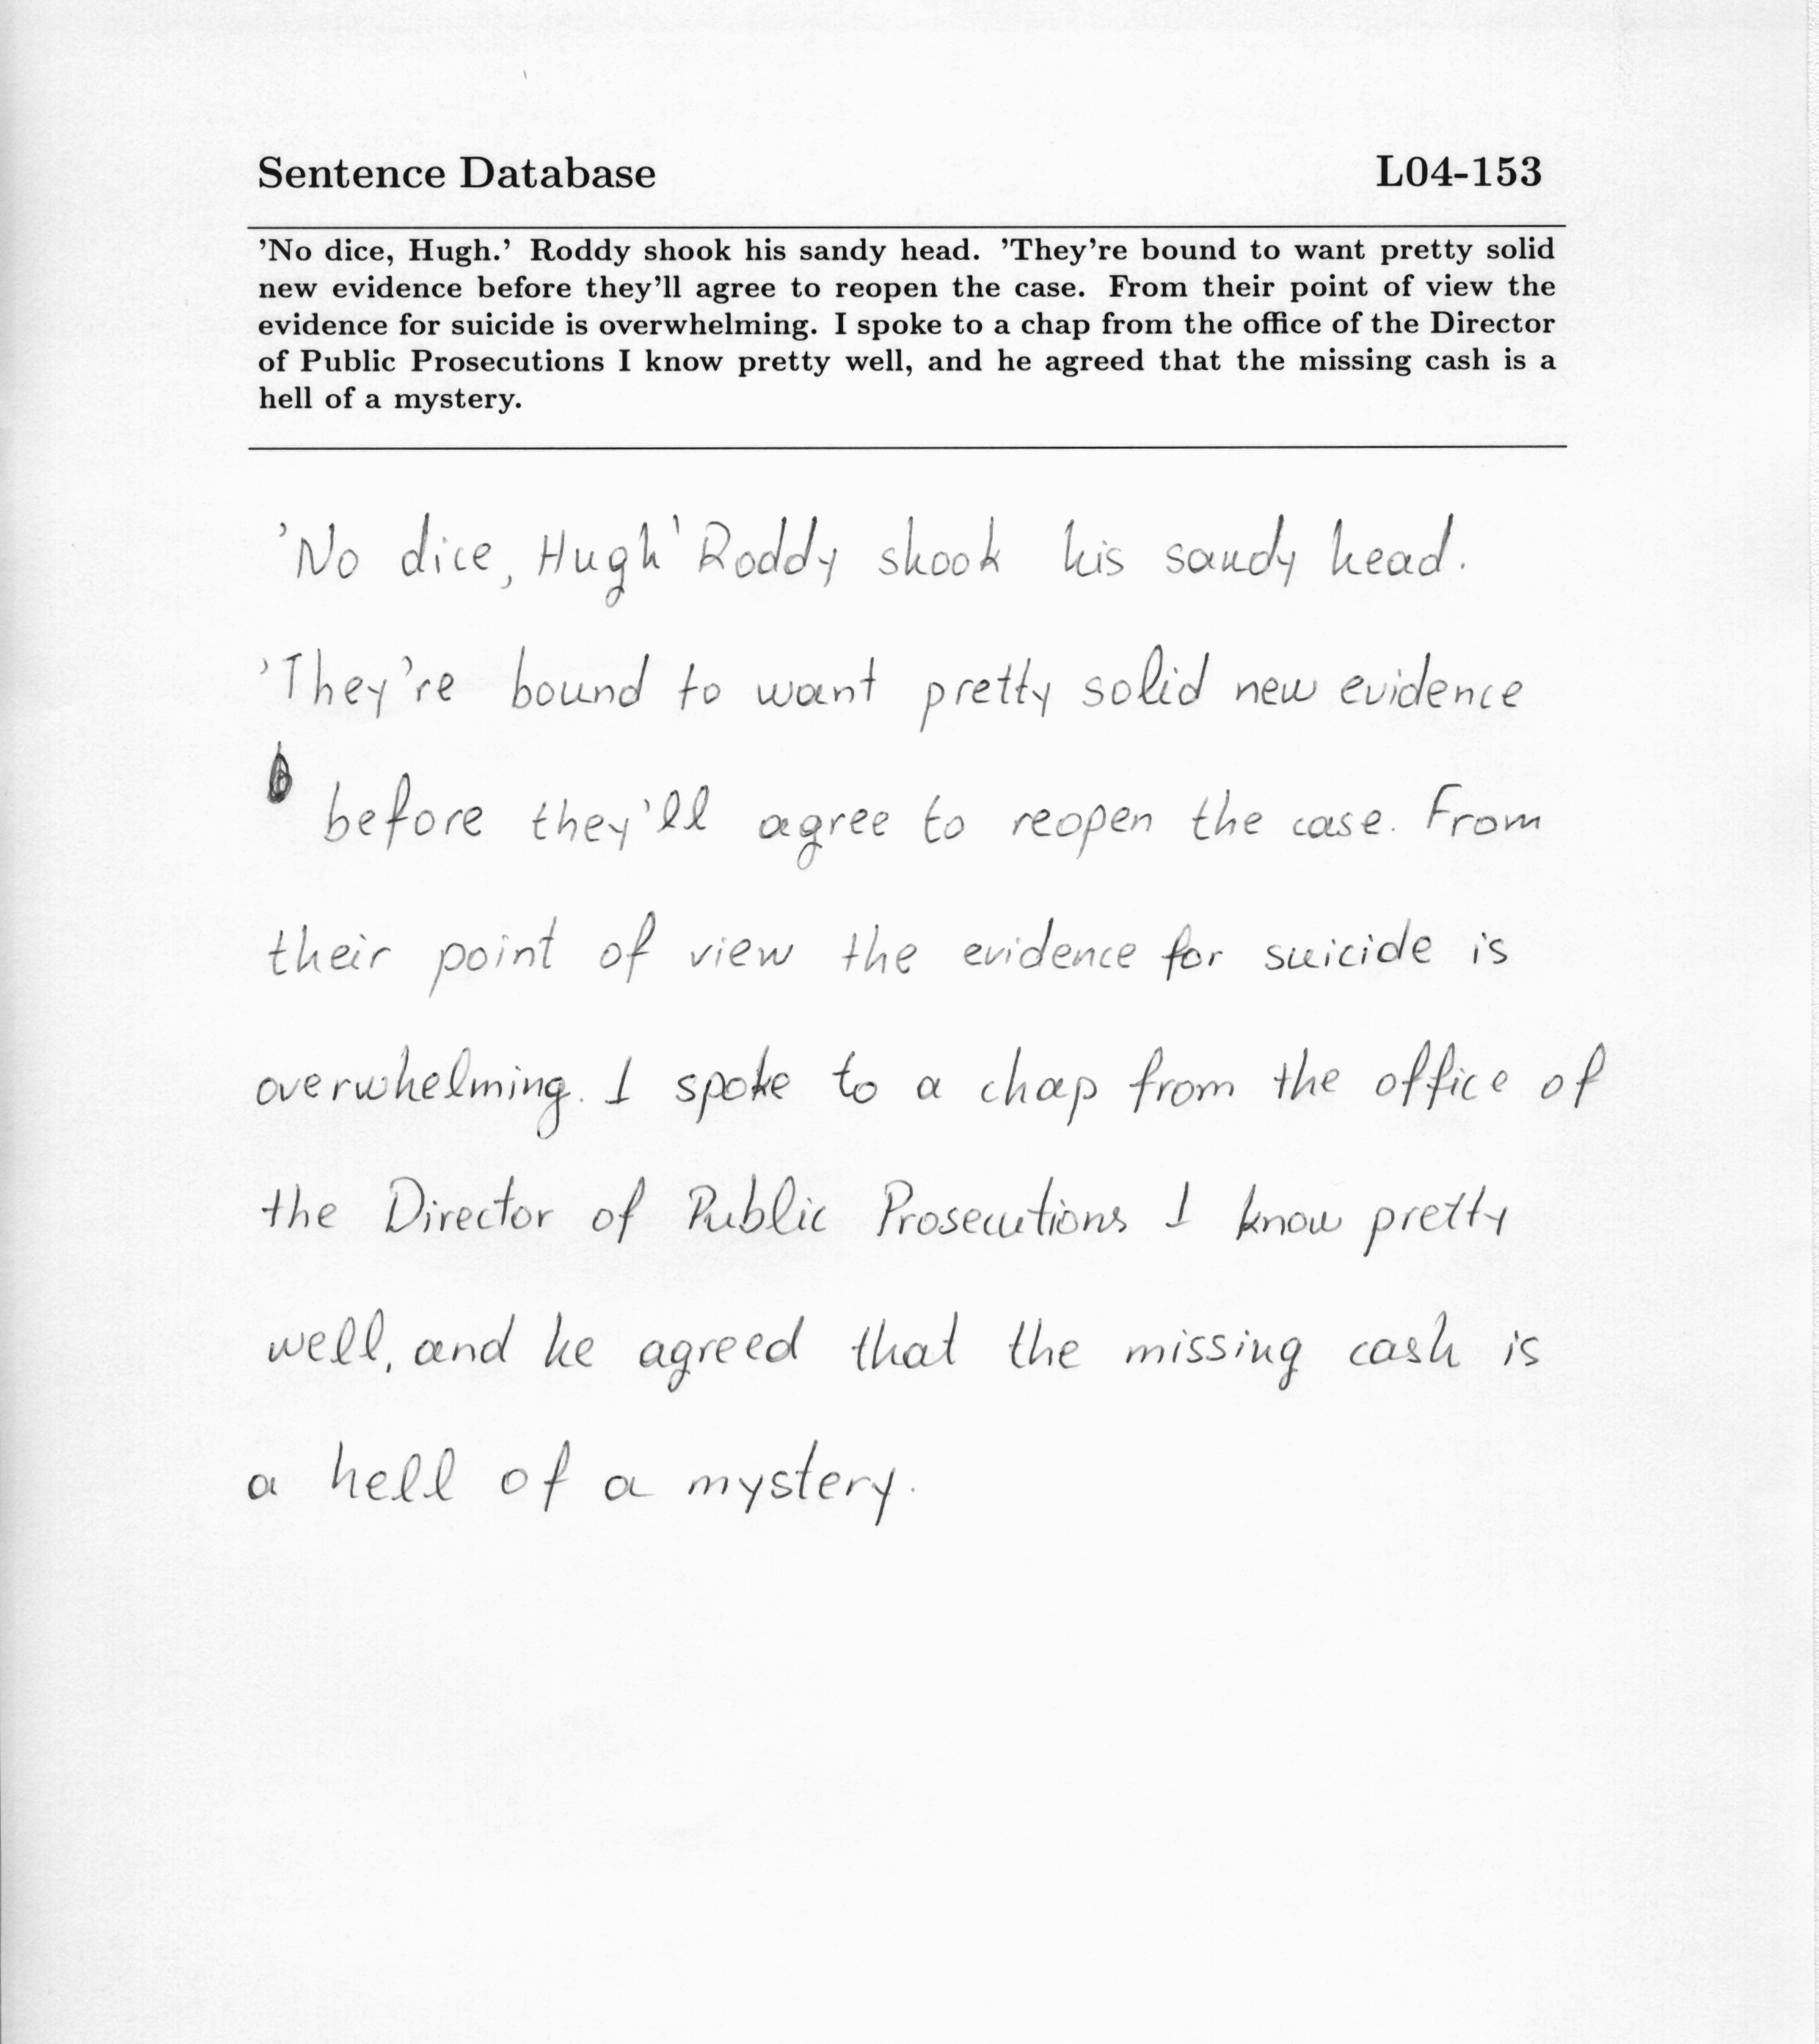 Sentence Database L04-153
'No dice, Hugh.' Roddy shook his sandy head. 'They're bound to want pretty solid
new evidence before they'll agree to reopen the case. From their point of view the
evidence for suicide is overwhelming. I spoke to a chap from the office of the Director
of Public Prosecutions I know pretty well, and he agreed that the missing cash is a
hell of a mystery.
'No dice, Hugh' Roddy shook his sandy head.
'They're bound to want pretty solid new evidence
before they'll agree to reopen the case. From
their point of view the evidence for suicide is
overwhelming. I spoke to a chap from the office of
the Director of Public Prosecutions I know pretty
well, and he agreed that the missing cash is
a hell of a mystery.